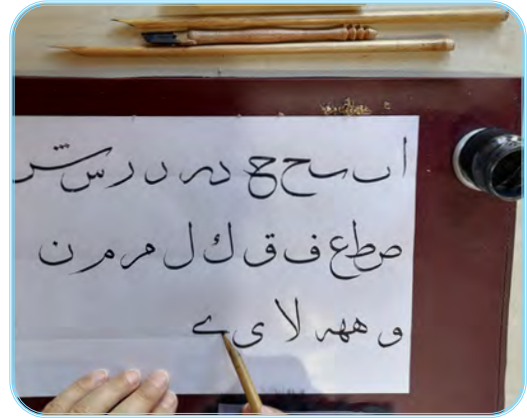 ا ب ں ح ح د ہ ر د ر س س
ص ط ع ف ق ك ل م م ن
و ه ه لا ى ے